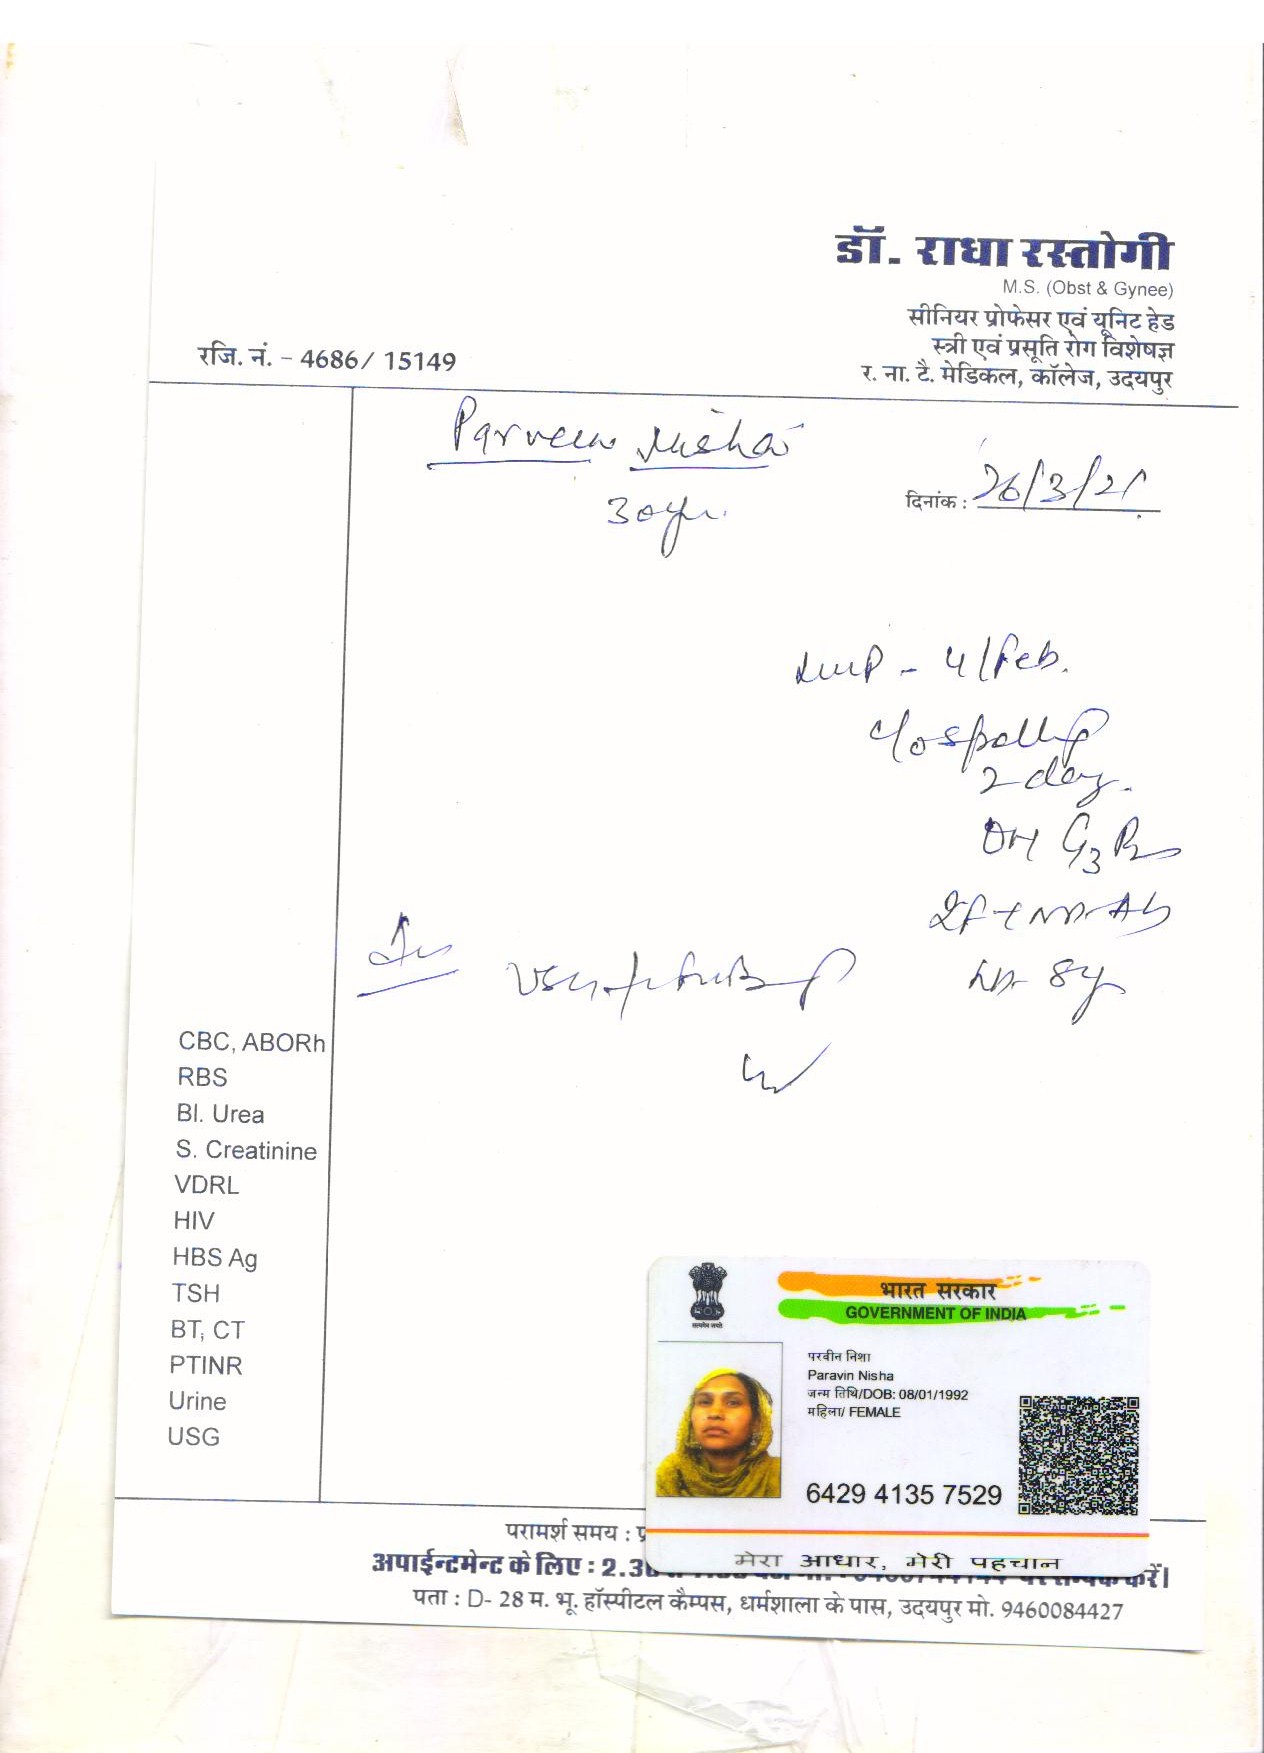 डॉ. राधा रस्तोगी
M.S. (Obst & Gynee)
सीनियर प्रोफेसर एवं यूनिट हेड
स्त्री एवं प्रसूति रोग विशेषज्ञ
र. ना. टै. मेडिकल, कॉलेज, उदयपुर
रजि. नं. - 4686/ 15149
Parveen Nisha
30yr.
दिनांक : 26/3/21
LMP - 4/Feb.
c/o spotting
2 day.
OH G3P2
LD- 8y
CBC, ABORh
RBS
Bl. Urea
S. Creatinine
VDRL
HIV
HBS Ag
TSH
BT, CT
PTINR
Urine
USG
भारत सरकार
GOVERNMENT OF INDIA
सत्यमेव जयते
परवीन निशा
Paravin Nisha
जन्म तिथि/DOB: 08/01/1992
महिला/ FEMALE
6429 4135 7529
मेरा आधार, मेरी पहचान
परामर्श समय :
अपाईन्टमेन्ट के लिए : 2.30 करें।
पता : D- 28 म. भू. हॉस्पीटल कैम्पस, धर्मशाला के पास, उदयपुर मो. 9460084427